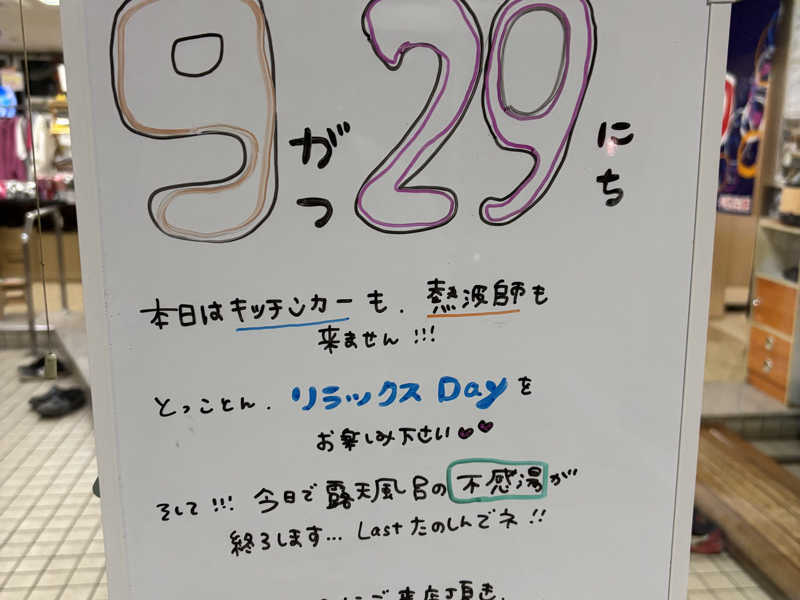 9がつ29にち
本日はキッチンカーも、熱波師も
来ません!!!
とっことん、リラックスDayを
お楽しみ下さい
そして!!!今日で露天風呂の不感湯が
終ろします...Lastたのしんでネ!!
ご来店頂き、